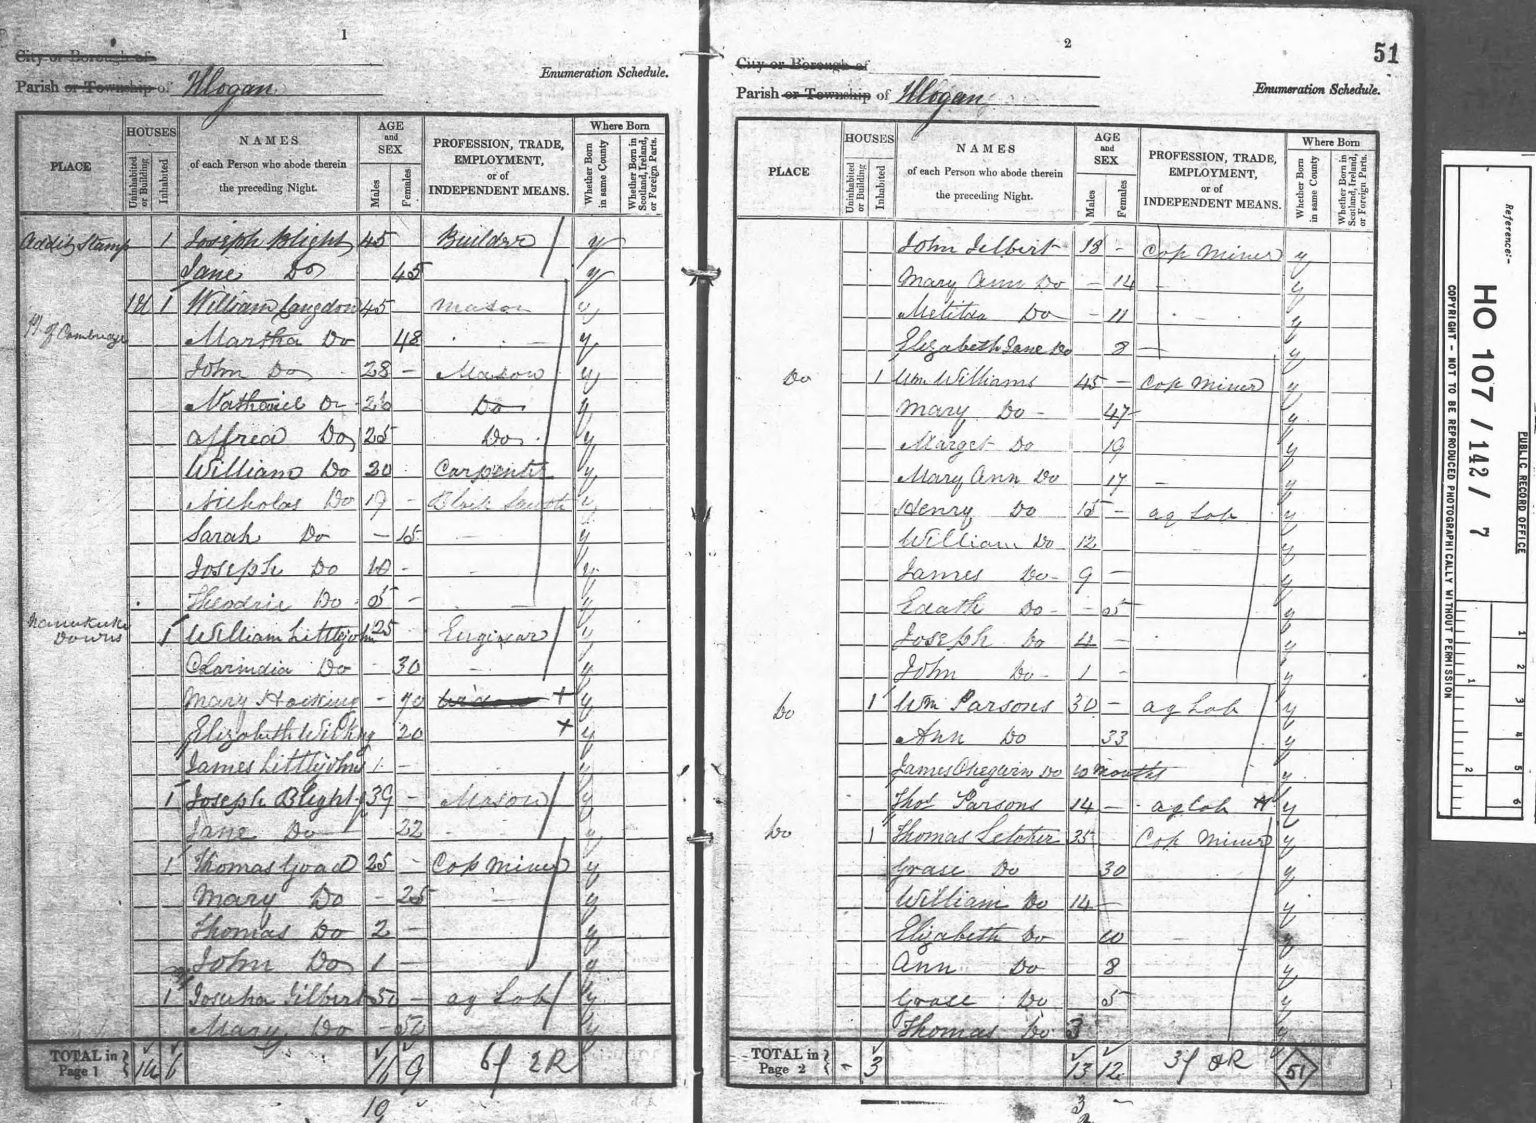 1
City or Borough of
Parish or Township of Illogan
Enumeration Schedule.
PLACE
HOUSES
Uninhabited or Building
Inhabited
NAMES
of each Person who abode therein
the preceding Night.
AGE and SEX
Males
Females
PROFESSION, TRADE,
EMPLOYMENT,
or of
INDEPENDENT MEANS.
Where Born
Whether Born in same County
Whether Born in Scotland, Ireland, or Foreign Parts.
1 Joseph Blight 45 Builder y
Jane Do 45 y
1 William Langdon 45 Mason y
Martha Do 48 y
John Do 28 - Mason y
Nathaniel Do - 26 Do y
Alfred Do 25 Do y
William Do 20 Carpenter y
Nicholas Do 19 - Black Smith y
Sarah Do - 15 y
Joseph Do 10 - y
Do 5 - y
Downs 1 William Littlejohn 25 Enginear y
Do - 30 - y
Mary Hocking - 70 + y
Elizabeth 20 + y
James Littlejohn 1 - y
1 Joseph Blight 39 - Mason y
Jane Do 22 y
1 Thomas Goad 25 - Cop Miner y
Mary Do - 25 y
Thomas Do 2 - y
John Do 1 - y
1 Gilbert 50 - ag Lab y
Mary Do - 50 y
TOTAL in Page 1 6 16 9 6f 2R
19
2
51
City or Borough of
Parish or Township of Illogan
Enumeration Schedule.
PLACE
HOUSES
Uninhabited or Building
Inhabited
NAMES
of each Person who abode therein
the preceding Night.
AGE and SEX
Males
Females
PROFESSION, TRADE,
EMPLOYMENT,
or of
INDEPENDENT MEANS.
Where Born
Whether Born in same County
Whether Born in Scotland, Ireland, or Foreign Parts.
John Gilbert 18 - Cop Miner y
Mary Ann Do - 14 - y
Metilda Do - 11 y
Elizabeth Jane Do 8 - y
Do 1 Wm Williams 45 - Cop Miner y
Mary Do - 47 y
Marget Do 19 y
Mary Ann Do 17 - y
Henry Do 15 - ag Lab y
William Do 12 y
James Do - 9 - y
Do - - 5 y
Joseph Do 4 - y
John Do - 1 - y
Do 1 Wm Parsons 30 - ag Lab y
Ann Do 33 y
James Do 10 months y
Thos Parsons 14 - ag lab + y
Do 1 Thomas Letcher 35 Cop Miner y
Grace Do 30 y
William Do 14 - y
Elizabeth Do 10 y
Ann Do 8 y
Grace Do 5 y
Thomas Do 3 y
TOTAL in Page 2 - 3 13 12 3f 2R 51
3
Reference:-
HO 107 / 142 / 7
PUBLIC RECORD OFFICE
COPYRIGHT - NOT TO BE REPRODUCED PHOTOGRAPHICALLY WITHOUT PERMISSION
1 2 3 4 5 6
1 2